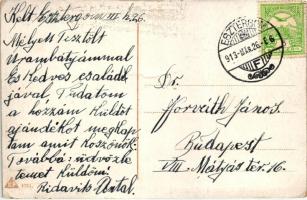 Kelt Esztergom III 4.26.
Mélyen Tisztelt
Urambátyámmal
És kedves család
jával, Tudatom
a hozzám küldöt
ajándékot megkap
tam amit köszönök.
Továbbá üdvözle
temet küldöm!
Ridavik Antal.
Dr.
Horváth János.
Budapest
VIII. Mátyás tér 16.
ESZTERGOM